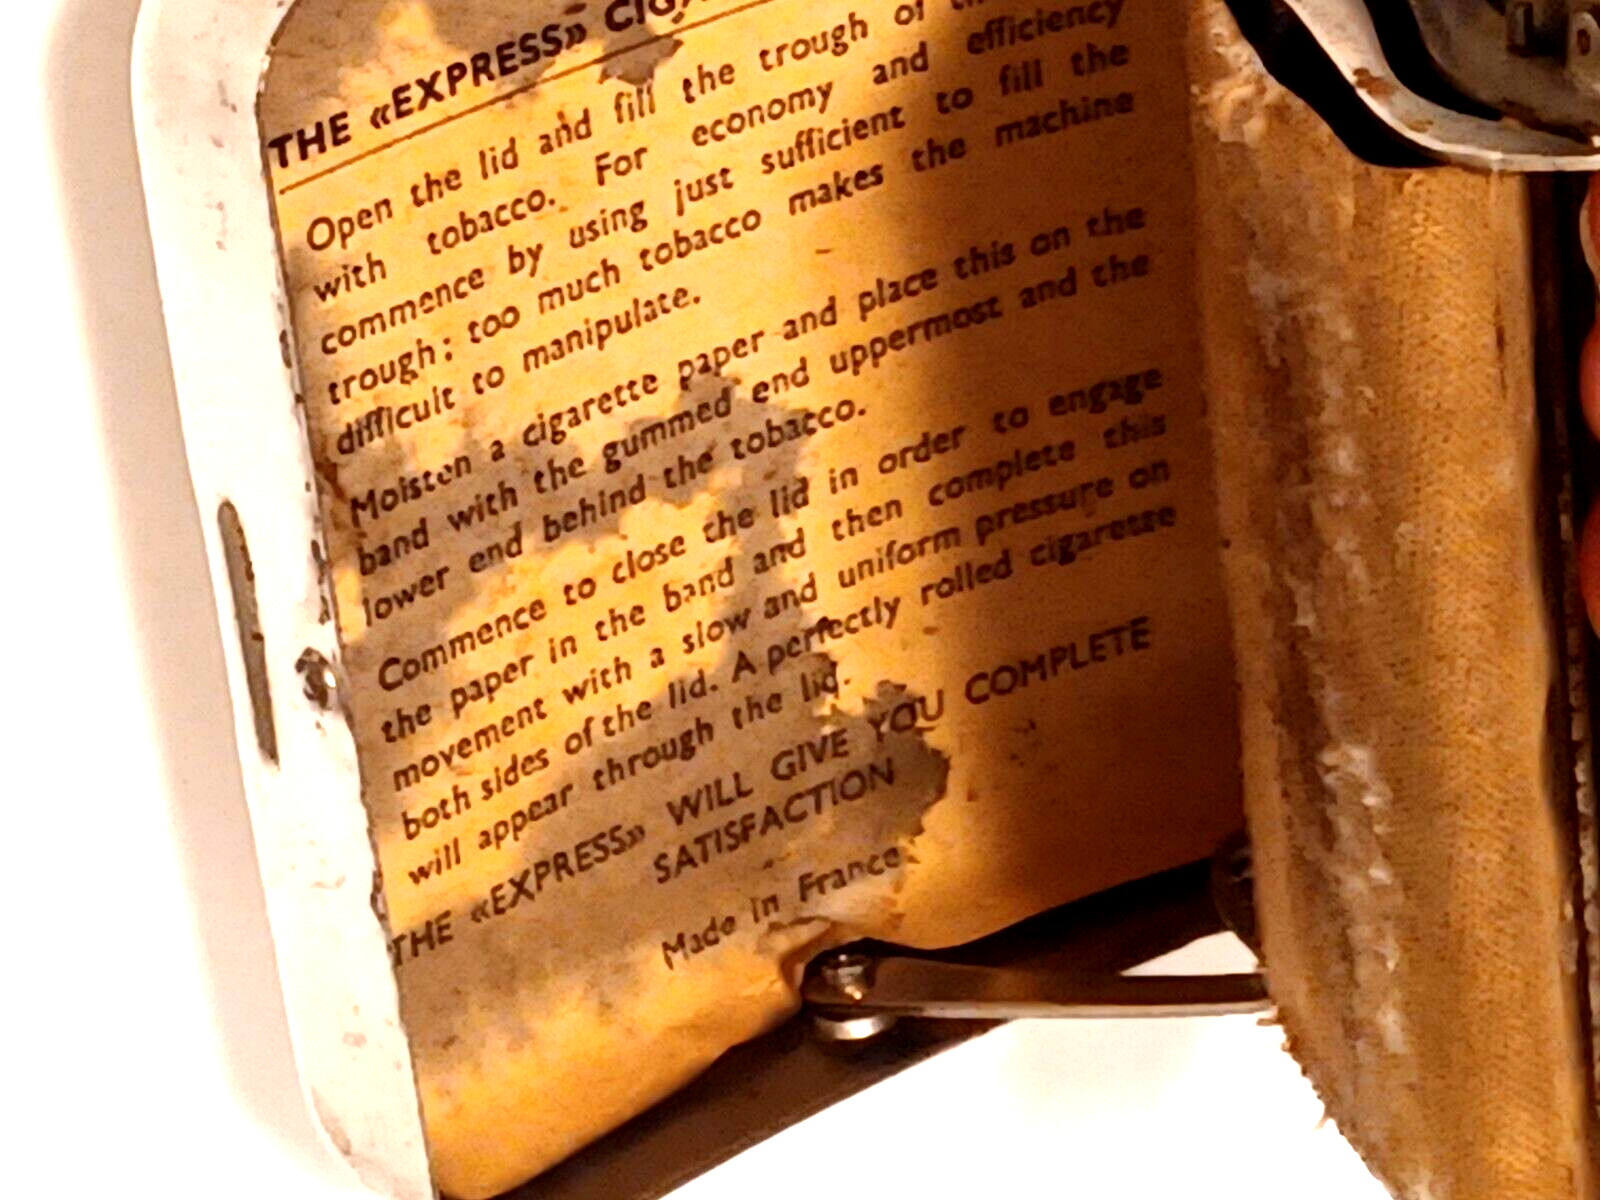 THE «EXPRESS»
Open the lid and fill the trough of
with tobacco. For economy and efficiency
commence by using just sufficient to fill the
trough; too much tobacco makes the machine
difficult to manipulate.
Moisten a cigarette paper and place this on the
band with the gummed end uppermost and the
lower end behind the tobacco.
Commence to close the lid in order to engage
the paper in the band and then complete this
movement with a slow and uniform pressure on
both sides of the lid. A perfectly rolled cigarette
will appear through the lid.
THE «EXPRESS» WILL GIVE YOU COMPLETE
SATISFACTION
Made in France